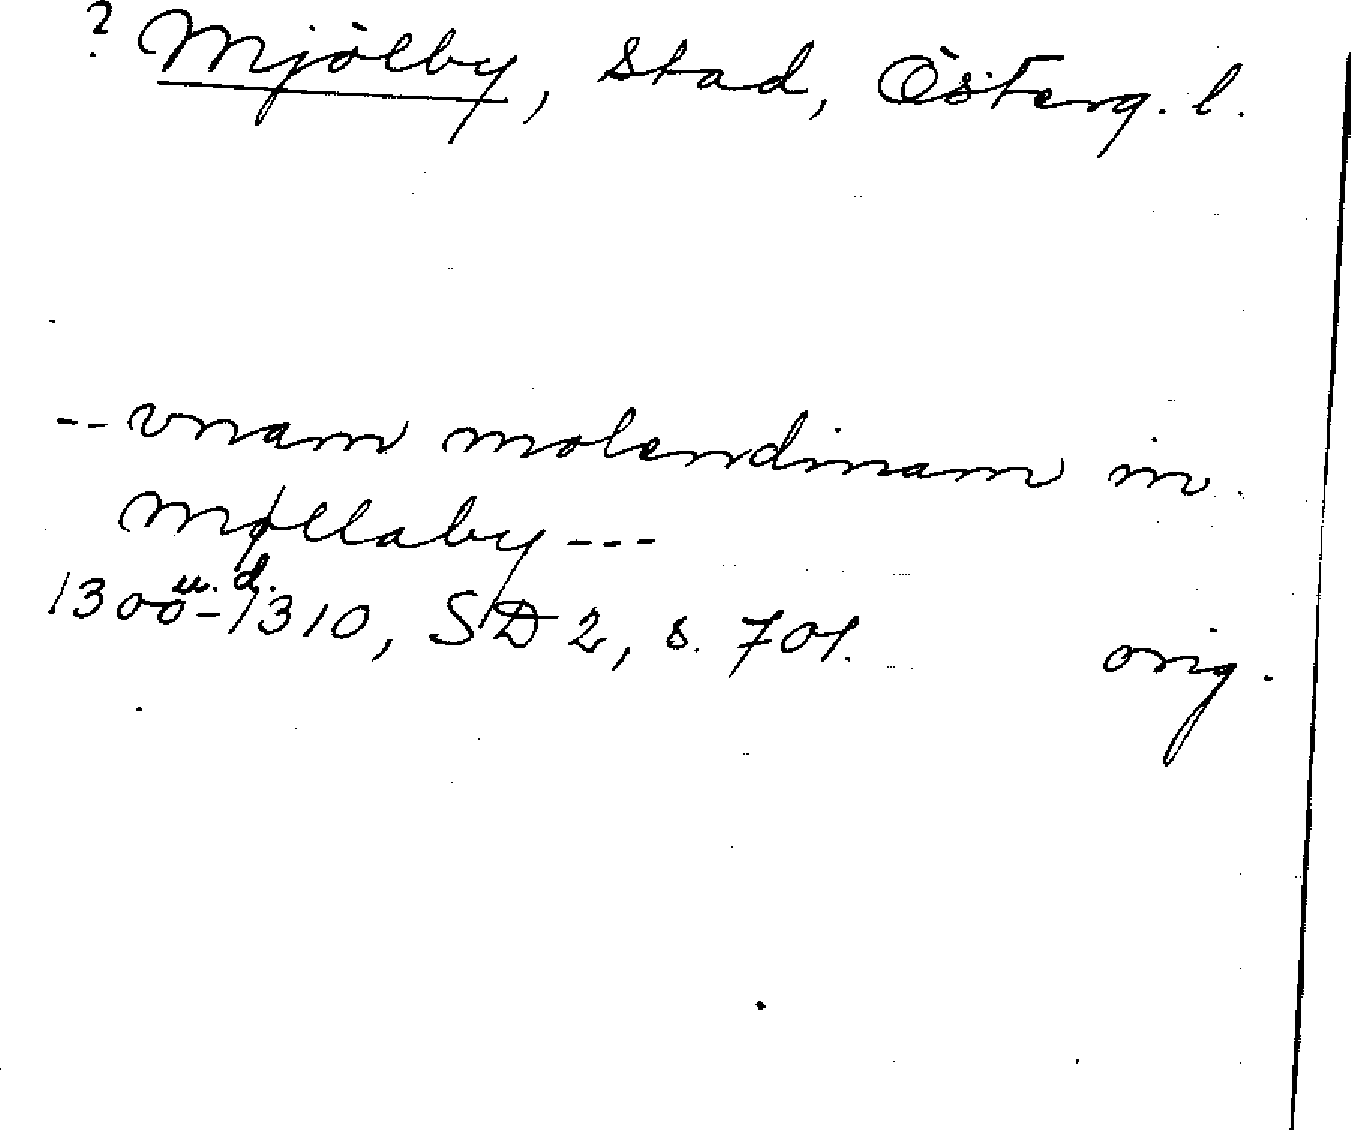 ? Mjölby, stad, Österg. l.
-- vnam molendinam in
Møllaby ---
u. d.
1300-1310, SD 2, s. 701. orig.